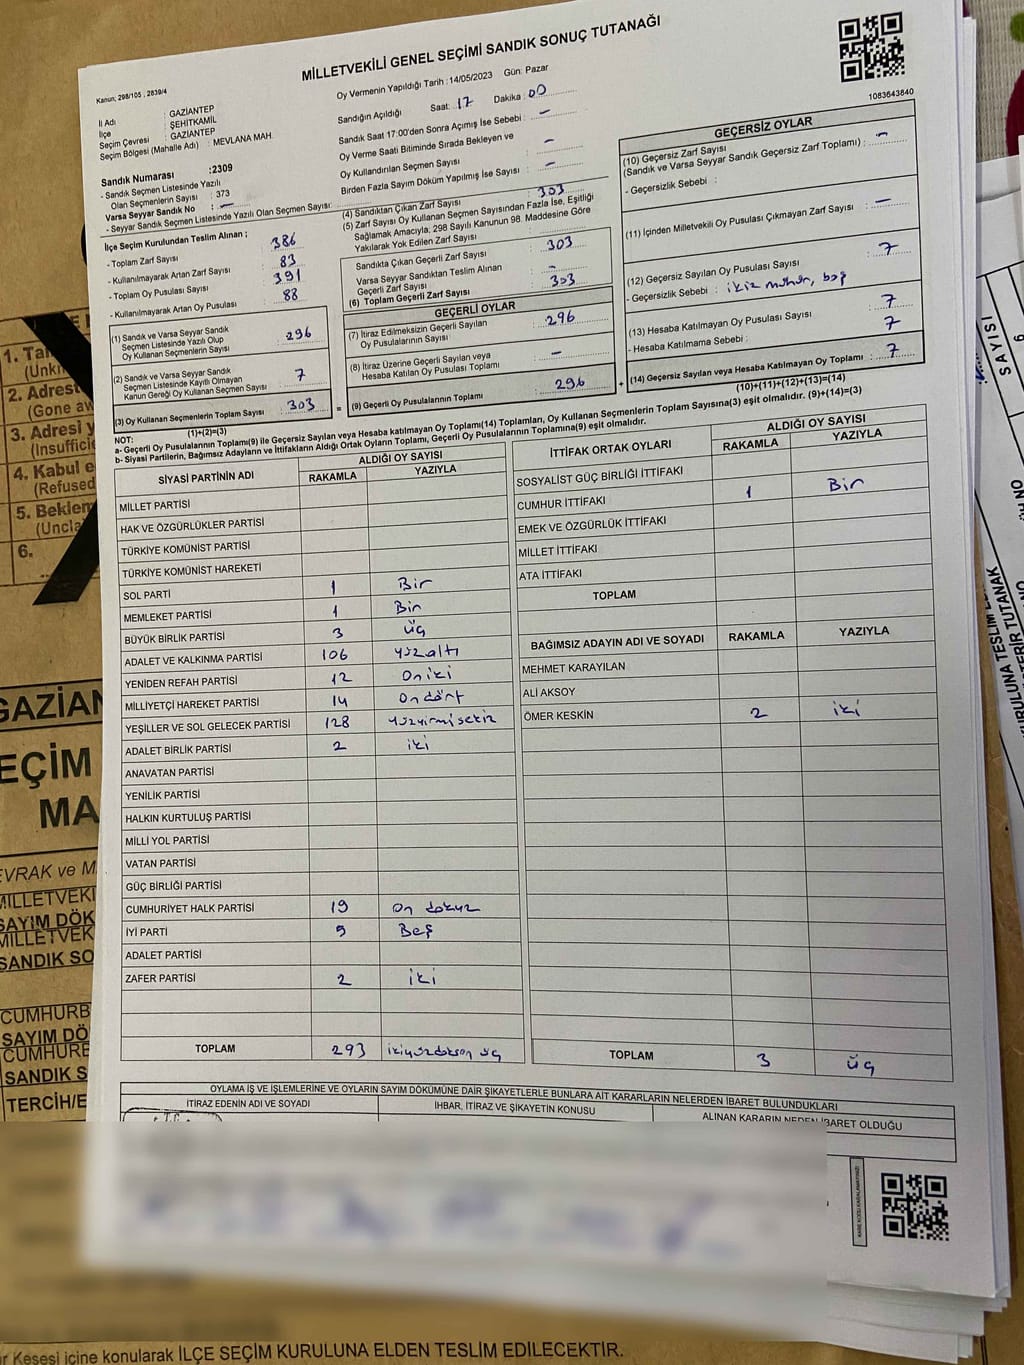 MİLLETVEKİLİ GENEL SEÇİMİ SANDIK SONUÇ TUTANAĞI
Kanun: 298/105 , 2839/4
İl Adı : GAZİANTEP
İlçe : ŞEHİTKAMİL
Seçim Çevresi : GAZİANTEP
Seçim Bölgesi (Mahalle Adı) : MEVLANA MAH.
Oy Vermenin Yapıldığı Tarih : 14/05/2023 Gün: Pazar
Sandığın Açıldığı Saat: 17 Dakika : 00
Sandık Saat 17:00'den Sonra Açılmış İse Sebebi : –
Oy Verme Saati Bitiminde Sırada Bekleyen ve
Oy Kullandırılan Seçmen Sayısı –
Birden Fazla Sayım Döküm Yapılmış İse Sayısı –
1083643840
Sandık Numarası :2309
- Sandık Seçmen Listesinde Yazılı
Olan Seçmenlerin Sayısı : 373
Varsa Seyyar Sandık No : –
- Seyyar Sandık Seçmen Listesinde Yazılı Olan Seçmen Sayısı:
İlçe Seçim Kurulundan Teslim Alınan ;
- Toplam Zarf Sayısı : 386
- Kullanılmayarak Artan Zarf Sayısı : 83
- Toplam Oy Pusulası Sayısı : 391
- Kullanılmayarak Artan Oy Pusulası : 88
(1) Sandık ve Varsa Seyyar Sandık
Seçmen Listesinde Yazılı Olup
Oy Kullanan Seçmenlerin Sayısı : 296
(2) Sandık ve Varsa Seyyar Sandık
Seçmen Listesinde Kayıtlı Olmayan
Kanun Gereği Oy Kullanan Seçmen Sayısı : 7
(3) Oy Kullanan Seçmenlerin Toplam Sayısı : 303
(1)+(2)=(3)
(4) Sandıktan Çıkan Zarf Sayısı 303
(5) Zarf Sayısı Oy Kullanan Seçmen Sayısından Fazla İse, Eşitliği
Sağlamak Amacıyla; 298 Sayılı Kanunun 98. Maddesine Göre
Yakılarak Yok Edilen Zarf Sayısı
Sandıkta Çıkan Geçerli Zarf Sayısı : 303
Varsa Seyyar Sandıktan Teslim Alınan
Geçerli Zarf Sayısı –
(6) Toplam Geçerli Zarf Sayısı : 303
GEÇERLİ OYLAR
(7) İtiraz Edilmeksizin Geçerli Sayılan
Oy Pusulalarının Sayısı : 296
(8) İtiraz Üzerine Geçerli Sayılan veya
Hesaba Katılan Oy Pusulası Toplamı : –
(9) Geçerli Oy Pusulalarının Toplamı : 296
GEÇERSİZ OYLAR
(10) Geçersiz Zarf Sayısı
(Sandık ve Varsa Seyyar Sandık Geçersiz Zarf Toplamı) : –
- Geçersizlik Sebebi :
(11) İçinden Milletvekili Oy Pusulası Çıkmayan Zarf Sayısı : –
(12) Geçersiz Sayılan Oy Pusulası Sayısı : 7
- Geçersizlik Sebebi : ikiz mühür, boş
(13) Hesaba Katılmayan Oy Pusulası Sayısı : 7
- Hesaba Katılmama Sebebi : 7
(14) Geçersiz Sayılan veya Hesaba Katılmayan Oy Toplamı : 7
(10)+(11)+(12)+(13)=(14)
NOT:
a- Geçerli Oy Pusulalarının Toplamı(9) ile Geçersiz Sayılan veya Hesaba katılmayan Oy Toplamı(14) Toplamları, Oy Kullanan Seçmenlerin Toplam Sayısına(3) eşit olmalıdır. (9)+(14)=(3)
b- Siyasi Partilerin, Bağımsız Adayların ve İttifakların Aldığı Ortak Oyların Toplamı, Geçerli Oy Pusulalarının Toplamına(9) eşit olmalıdır.
SİYASİ PARTİNİN ADI ALDIĞI OY SAYISI
RAKAMLA YAZIYLA
MİLLET PARTİSİ
HAK VE ÖZGÜRLÜKLER PARTİSİ
TÜRKİYE KOMÜNİST PARTİSİ
TÜRKİYE KOMÜNİST HAREKETİ
SOL PARTİ 1 Bir
MEMLEKET PARTİSİ 1 Bir
BÜYÜK BİRLİK PARTİSİ 3 üç
ADALET VE KALKINMA PARTİSİ 106 yüzaltı
YENİDEN REFAH PARTİSİ 12 Oniki
MİLLİYETÇİ HAREKET PARTİSİ 14 Ondört
YEŞİLLER VE SOL GELECEK PARTİSİ 128 yüzyirmisekiz
ADALET BİRLİK PARTİSİ 2 iki
ANAVATAN PARTİSİ
YENİLİK PARTİSİ
HALKIN KURTULUŞ PARTİSİ
MİLLİ YOL PARTİSİ
VATAN PARTİSİ
GÜÇ BİRLİĞİ PARTİSİ
CUMHURİYET HALK PARTİSİ 19 On dokuz
İYİ PARTİ 5 Beş
ADALET PARTİSİ
ZAFER PARTİSİ 2 iki
TOPLAM 293 ikiyüzdoksan üç
İTTİFAK ORTAK OYLARI ALDIĞI OY SAYISI
RAKAMLA YAZIYLA
SOSYALİST GÜÇ BİRLİĞİ İTTİFAKI
CUMHUR İTTİFAKI 1 Bir
EMEK VE ÖZGÜRLÜK İTTİFAKI
MİLLET İTTİFAKI
ATA İTTİFAKI
TOPLAM
BAĞIMSIZ ADAYIN ADI VE SOYADI RAKAMLA YAZIYLA
MEHMET KARAYILAN
ALİ AKSOY
ÖMER KESKİN 2 iki
TOPLAM 3 üç
OYLAMA İŞ VE İŞLEMLERİNE VE OYLARIN SAYIM DÖKÜMÜNE DAİR ŞİKAYETLERLE BUNLARA AİT KARARLARIN NELERDEN İBARET BULUNDUKLARI
İTİRAZ EDENİN ADI VE SOYADI İHBAR, İTİRAZ VE ŞİKAYETİN KONUSU ALINAN KARARIN NEDEN İBARET OLDUĞU
1. Ta
(Unkn
2. Adrest
(Gone aw
3. Adresi y
(Insuffici
4. Kabul e
(Refused
5. Beklem
(Uncla
6.
GAZİAN
EÇİM
MA
EVRAK ve M
MİLLETVEKİ
SAYIM DÖK
MİLLETVEK
SANDIK SO
CUMHURB
SAYIM DÖ
CUMHURE
SANDIK S
TERCİH/E
SAYISI
6
Kesesi içine konularak İLÇE SEÇİM KURULUNA ELDEN TESLİM EDİLECEKTİR.